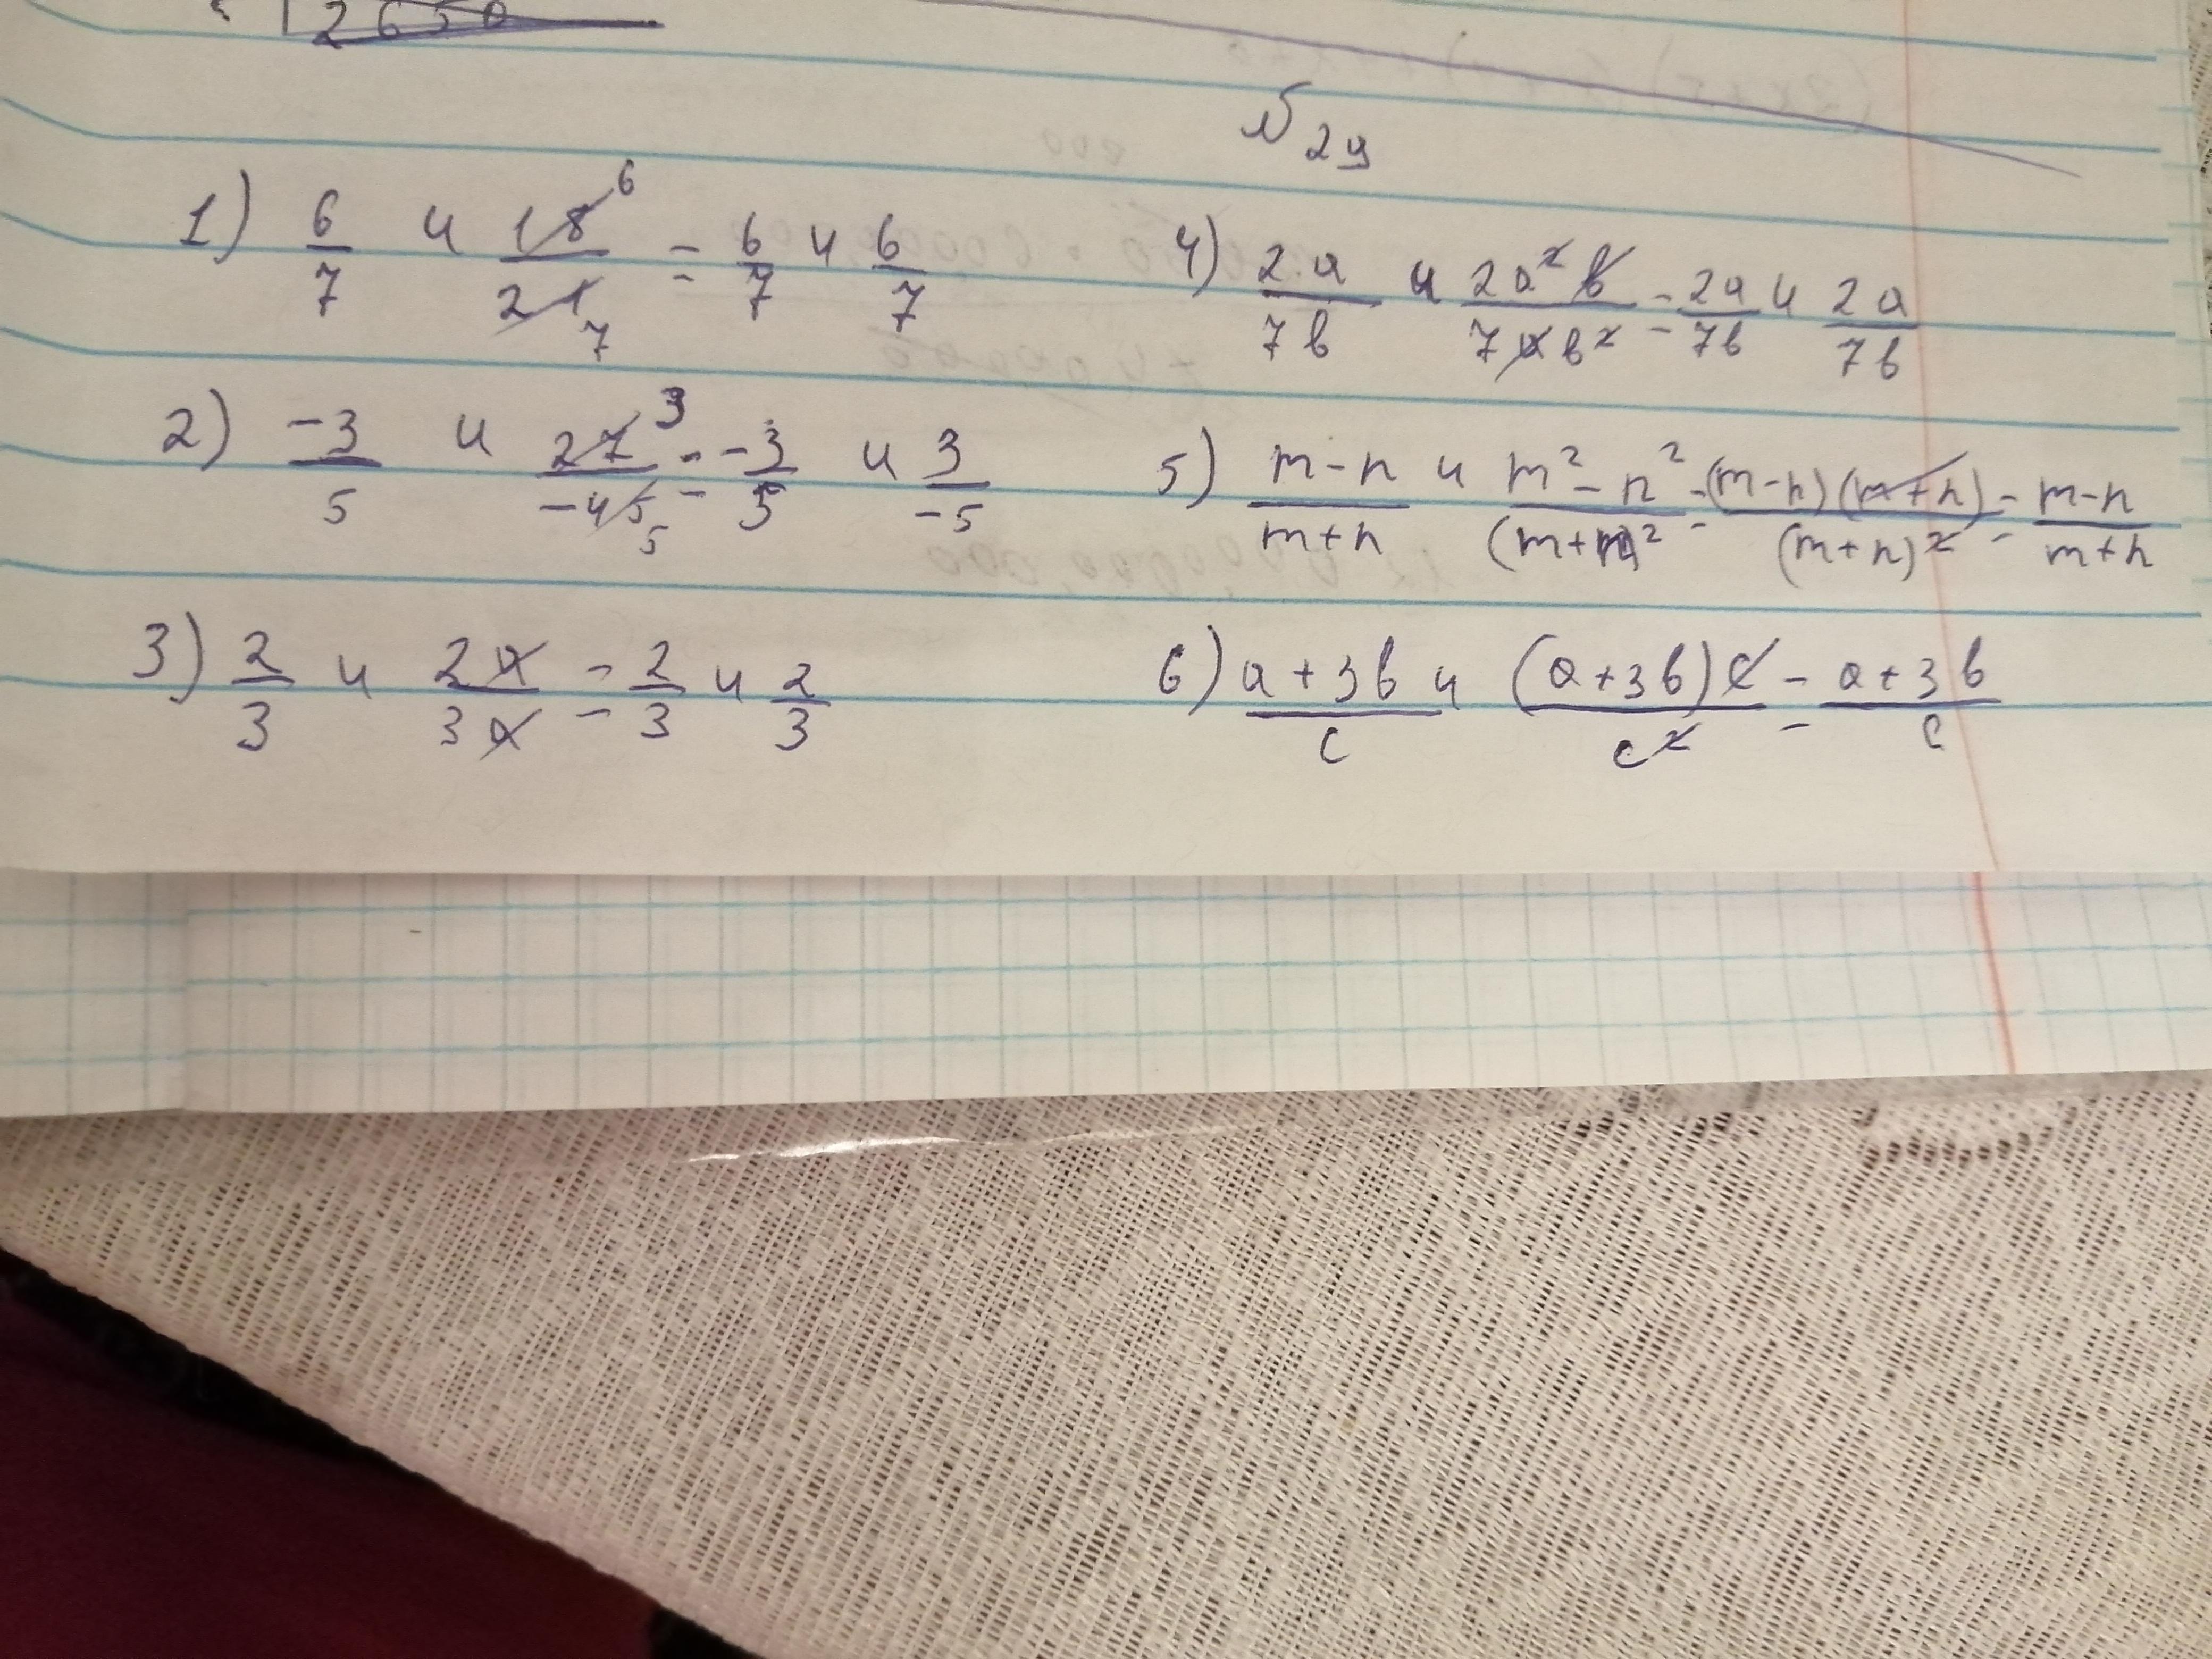 2650
№ 24
1) 6/7 и 18/21 = 6/7 и 6/7
6
7
2) -3/5 и 27/-45 = -3/5 и 3/-5
3
5
3) 2/3 и 2a/3a = 2/3 и 2/3
4) 2a/7b и 2a²b/7ab² = 2a/7b и 2a/7b
5) m-n/m+n и m²-n²/(m+n)² = (m-n)(m+n)/(m+n)² = m-n/m+n
6) a+3b/c и (a+3b)c/c² = a+3b/c